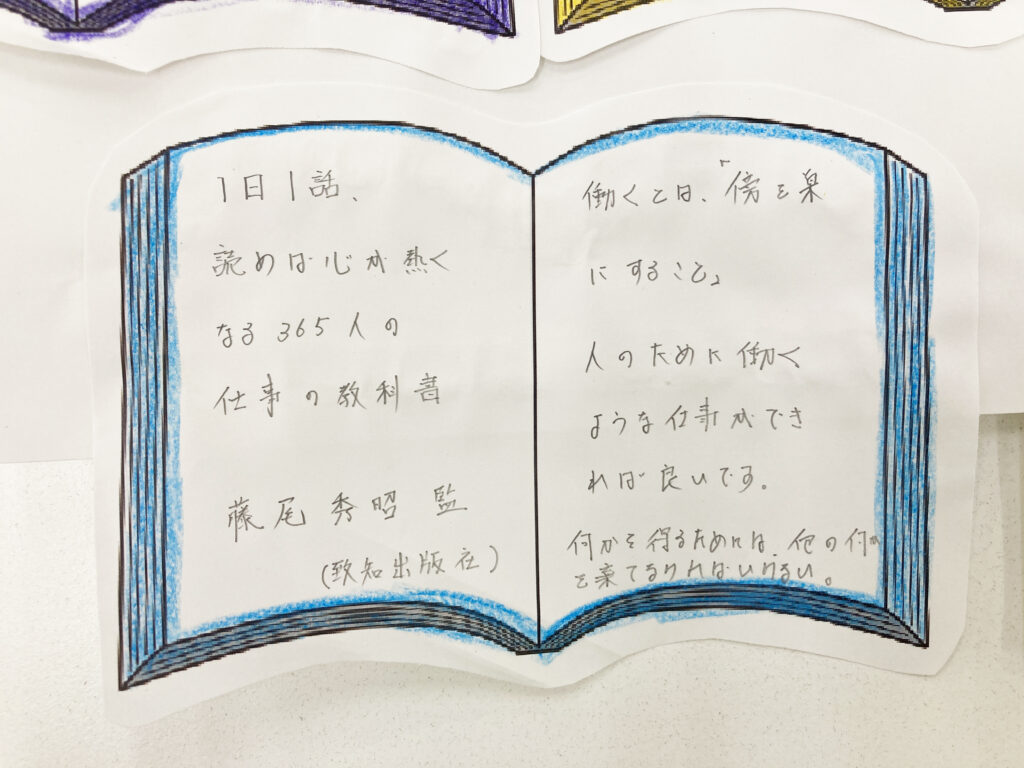 1日1話、
読めば心が熱く
なる365人の
仕事の教科書
藤尾秀昭 監
(致知出版社)
働くとは、「傍を楽
にすること」
人のために働く
ような仕事ができ
れば良いです。
何かを得るためには、他の何か
を棄てなければいけない。